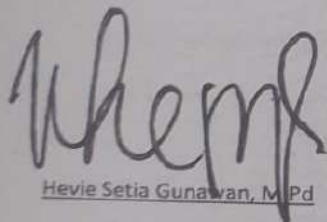 Hevie Setia Gunawan, M.Pd